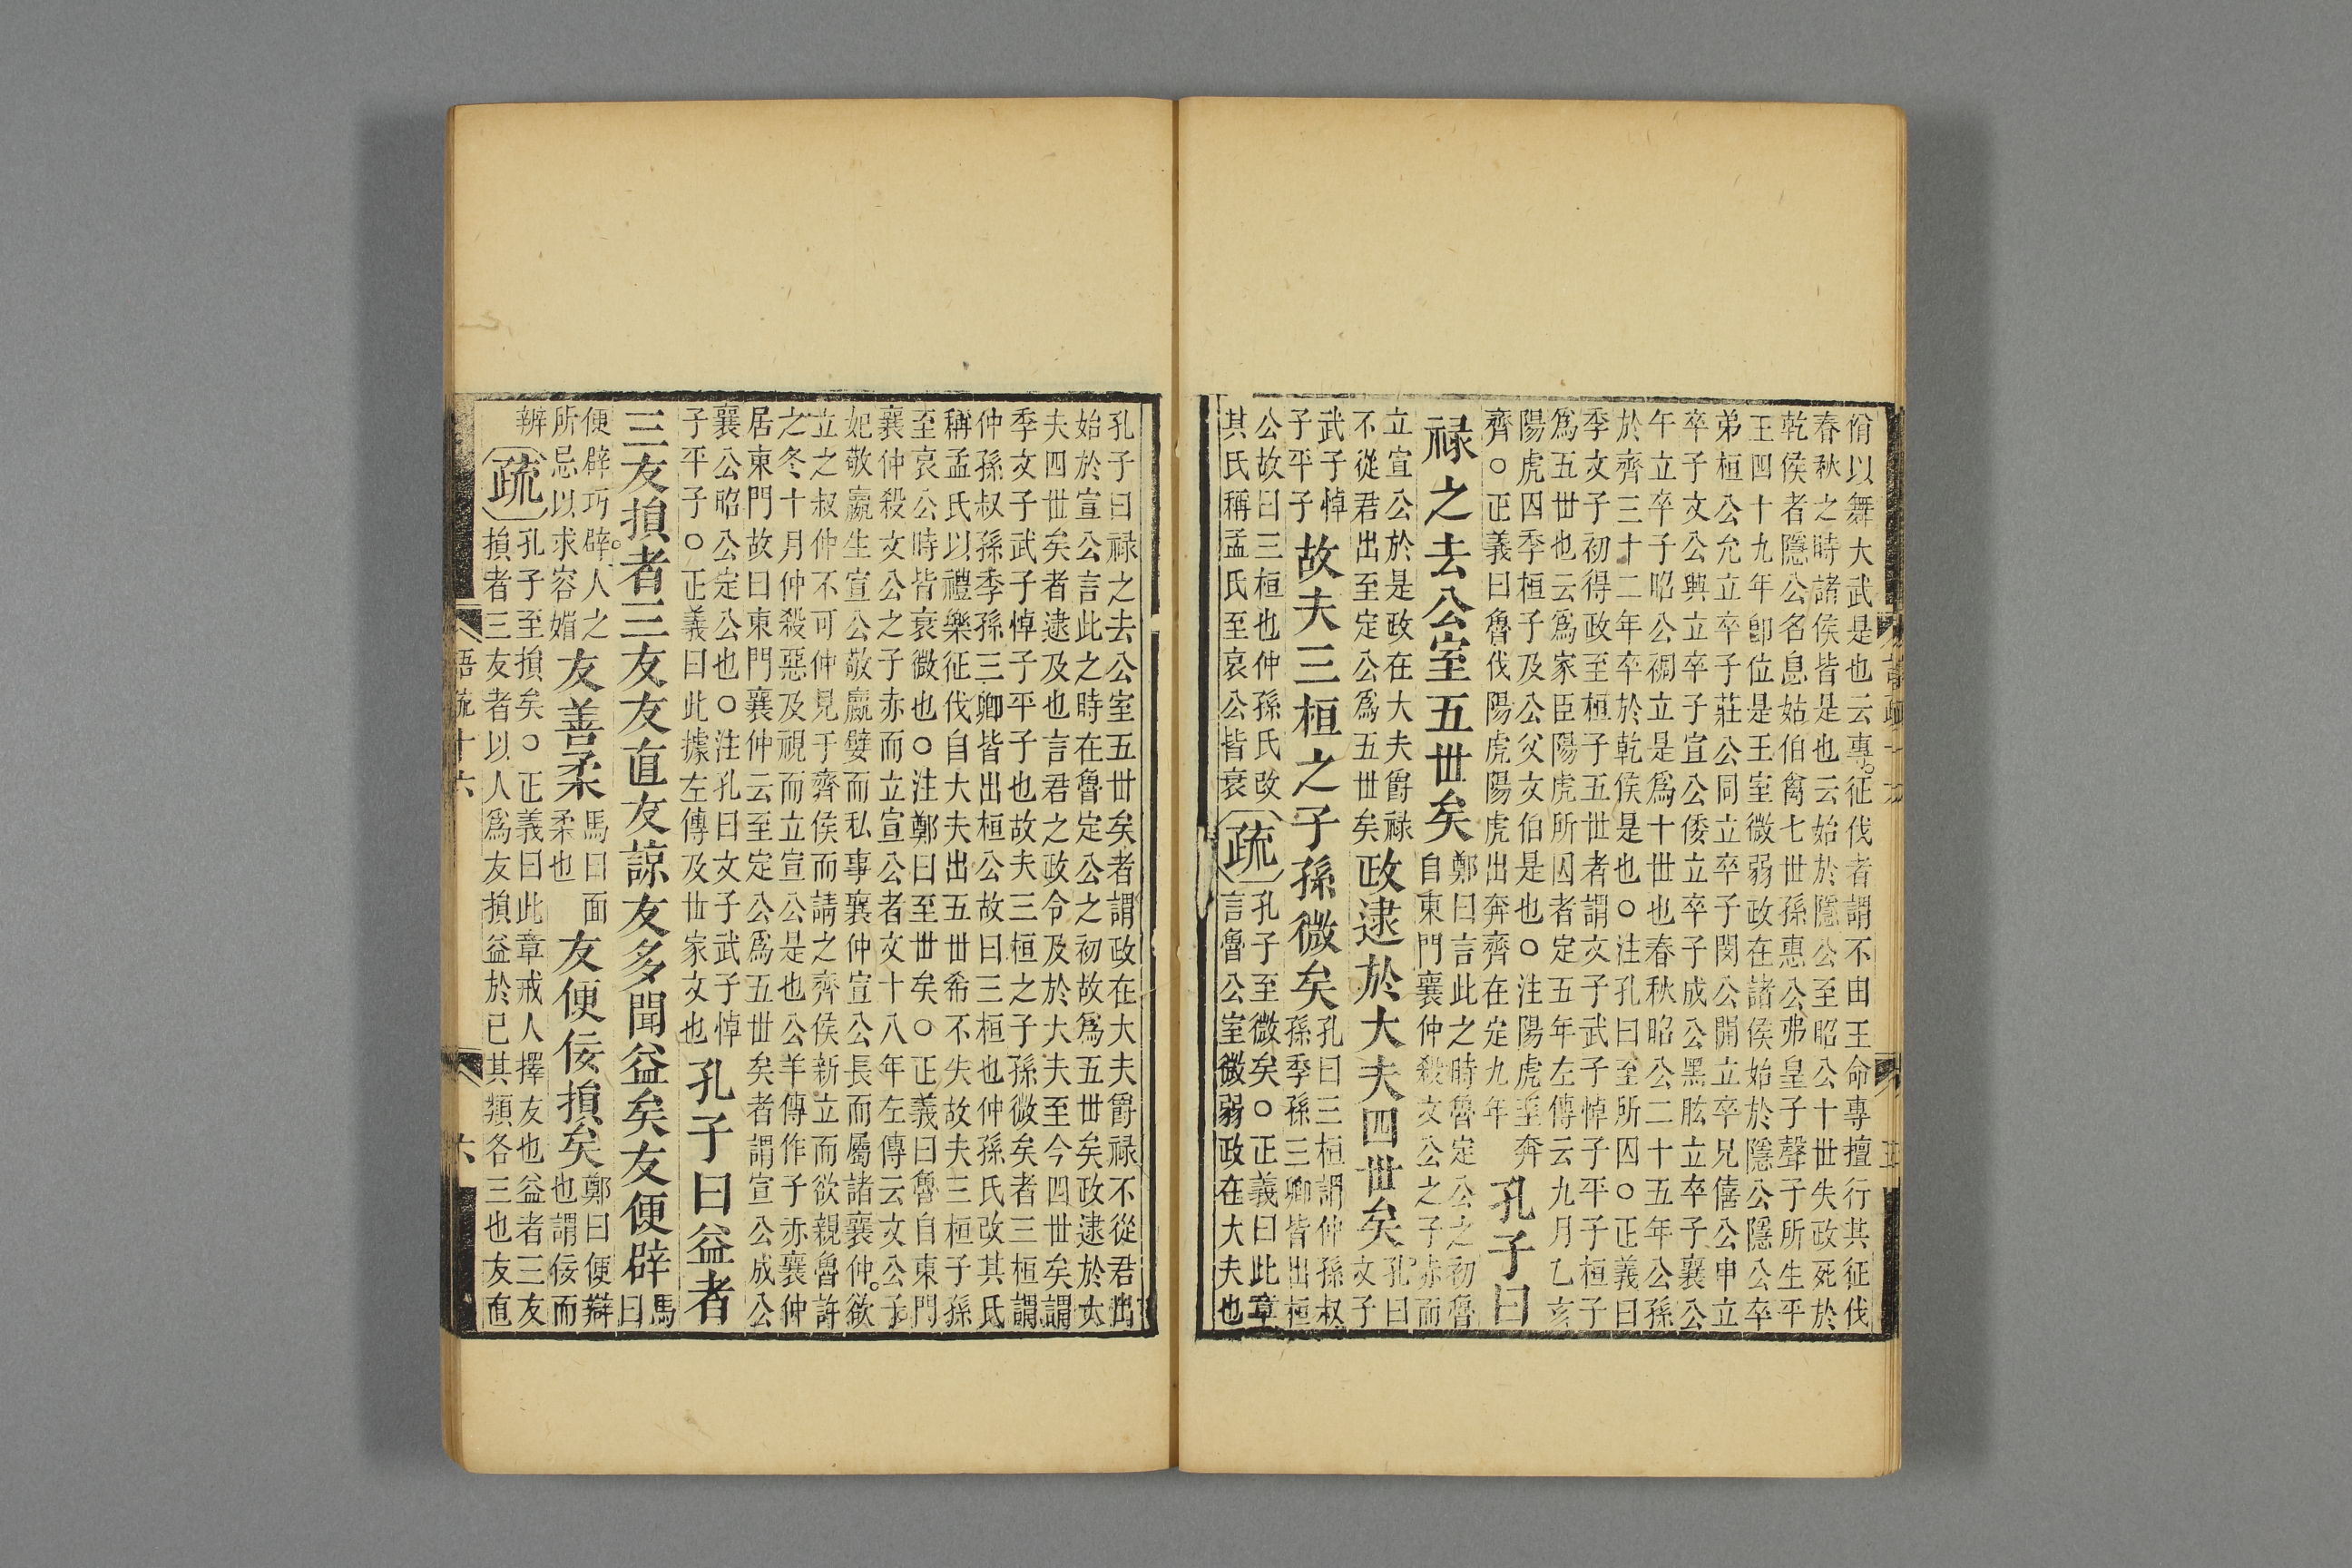 佾以舞大武是也云專征伐者謂不由王命專擅行其征伐
春秋之時諸侯皆是也云始於隱公至昭公十世失政死於
乾侯者隱公名息姑伯禽七世孫惠公弗皇子聲子所生平
王四十九年卽位是王室微弱政在諸侯始於隱公隱公卒
弟桓公允立卒子莊公同立卒子閔公開立卒兄僖公申立
卒子文公興立卒子宣公倭立卒子成公黑肱立卒子襄公
午立卒子昭公裯立是爲十世也春秋昭公二十五年公孫
於齊三十二年卒於乾侯是也○注孔曰至所囚○正義曰
季文子初得政至桓子五世者謂文子武子悼子平子桓子
爲五世也云爲家臣陽虎所囚者定五年左傳云九月乙亥
陽虎囚季桓子及公父文伯是也○注陽虎至奔
齊○正義曰魯伐陽虎陽虎出奔齊在定九年
孔子曰
祿之去公室五世矣
鄭曰言此之時魯定公之初魯
自東門襄仲殺文公之子赤而
立宣公於是政在大夫爵祿
不從君出至定公爲五世矣
政逮於大夫四世矣
孔曰
文子
武子悼
子平子
故夫三桓之子孫微矣
孔曰三桓謂仲孫叔
孫季孫三卿皆出桓
公故曰三桓也仲孫氏改
其氏稱孟氏至哀公皆衰
疏
孔子至微矣○正義曰此章
言魯公室微弱政在大夫也
孔子曰祿之去公室五世矣者謂政在大夫爵祿不從君出
始於宣公言此之時在魯定公之初故爲五世矣政逮於大
夫四世矣者逮及也言君之政令及於大夫至今四世矣謂
季文子武子悼子平子也故夫三桓之子孫微矣者三桓謂
仲孫叔孫季孫三卿皆出桓公故曰三桓也仲孫氏改其氏
稱孟氏以禮樂征伐自大夫出五世希不失故夫三桓子孫
至哀公時皆衰微也○注鄭曰至世矣○正義曰魯自東門
襄仲殺文公之子赤而立宣公者文十八年左傳云文公子
妃敬嬴生宣公敬嬴嬖而私事襄仲宣公長而屬諸襄仲欲
立之叔仲不可仲見于齊侯而請之齊侯新立而欲親魯許
之冬十月仲殺惡及視而立宣公是也公羊傳作子赤襄仲
居東門故曰東門襄仲云至定公爲五世矣者謂宣公成公
襄公昭公定公也○注孔曰文子武子悼
子平子○正義曰此據左傳及世家文也
孔子曰益者
三友損者三友友直友諒友多聞益矣友便辟
馬
曰
便辟巧辟人之
所忌以求容媚
友善柔
馬曰面
柔也
友便佞損矣
鄭曰便辯
也謂佞而
辨
疏
孔子至損矣○正義曰此章戒人擇友也益者三友
損者三友者以人爲友損益於己其類各三也友直
語疏十六
六